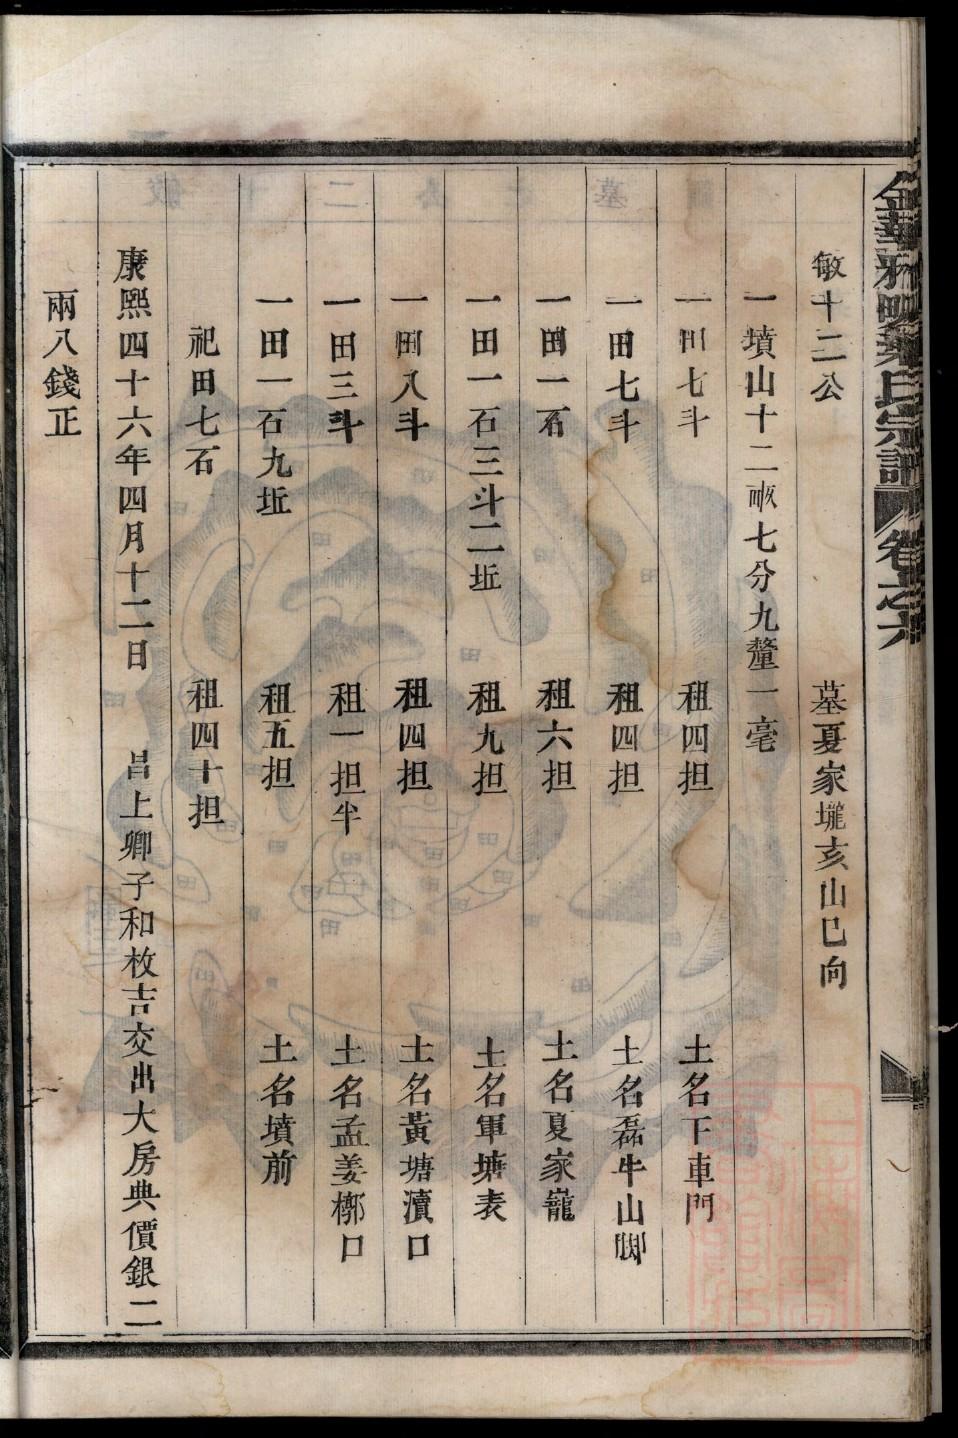 敏十二公 墓夏家壠亥山巳向
一墳山十二畝七分九釐一毫
一田七斗 租四担 土名下車門
一田七斗 租四担 土名磊牛山脚
一田一石 租六担 土名夏家寵
一田一石三斗二坵 租九担 土名軍塘表
一田八斗 租四担 土名黃塘瀆口
一田三斗 租一担半 土名孟姜槨口
一田一石九坵 租五担 土名墳前
祀田七石 租四十担
康熙四十六年四月十二日 吕上卿子和枚吉交出大房典價銀二
兩八錢正